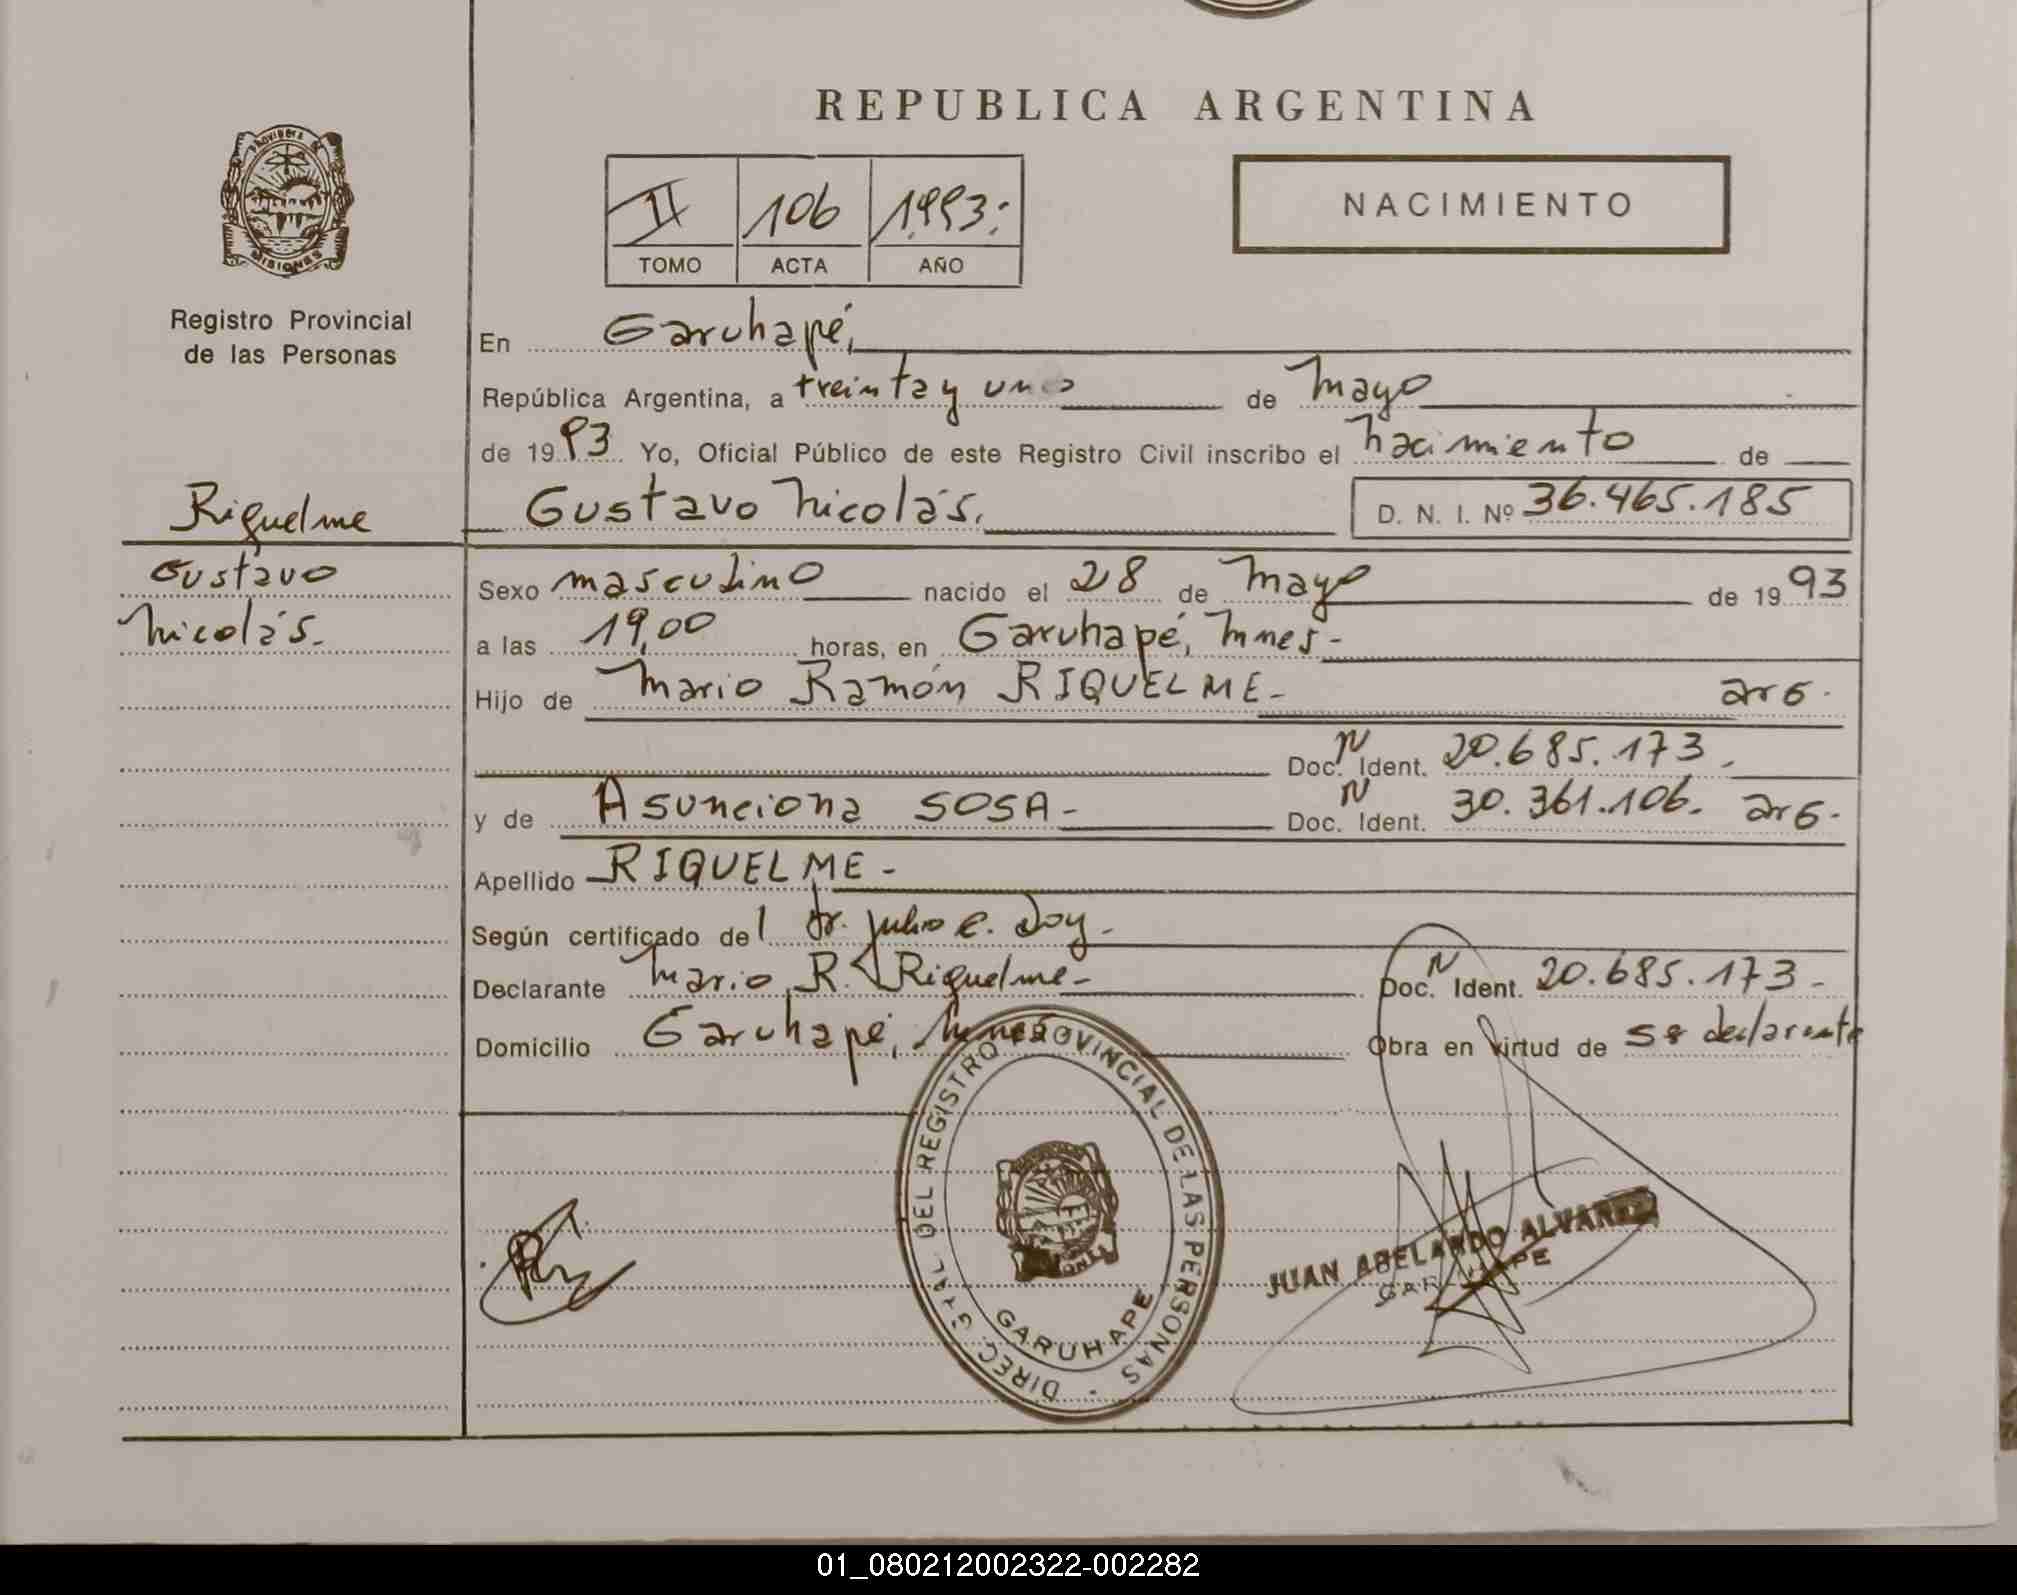 REPUBLICA ARGENTINA
PROVINCIA DE
MISIONES
II 106 1993:
TOMO ACTA AÑO
NACIMIENTO
Registro Provincial
de las Personas
En Garuhapé,
República Argentina, a treinta y uno de Mayo
de 1993 Yo, Oficial Público de este Registro Civil inscribo el Nacimiento de
Riquelme
Gustavo Nicolás. D. N. I. Nº 36.465.185
Gustavo
Nicolás.
Sexo masculino nacido el 28 de Mayo de 1993
a las 19,00 horas, en Garuhapé, Mnes-
Hijo de Mario Ramón RIQUELME- arg.
Doc. N Ident. 20.685.173.
y de Asunciona SOSA- Doc. N Ident. 30.361.106. arg.
Apellido RIQUELME-
Según certificado del Dr. Julio C. Doy.
Declarante Mario R. Riquelme- Doc. N Ident. 20.685.173-
Domicilio Garuhapé, Mnes Obra en virtud de ser declarante
DIREC. GRAL DEL REGISTRO PROVINCIAL DE LAS PERSONAS
GARUHAPE
JUAN ABELARDO ALVAREZ
GARUHAPE
01_080212002322-002282